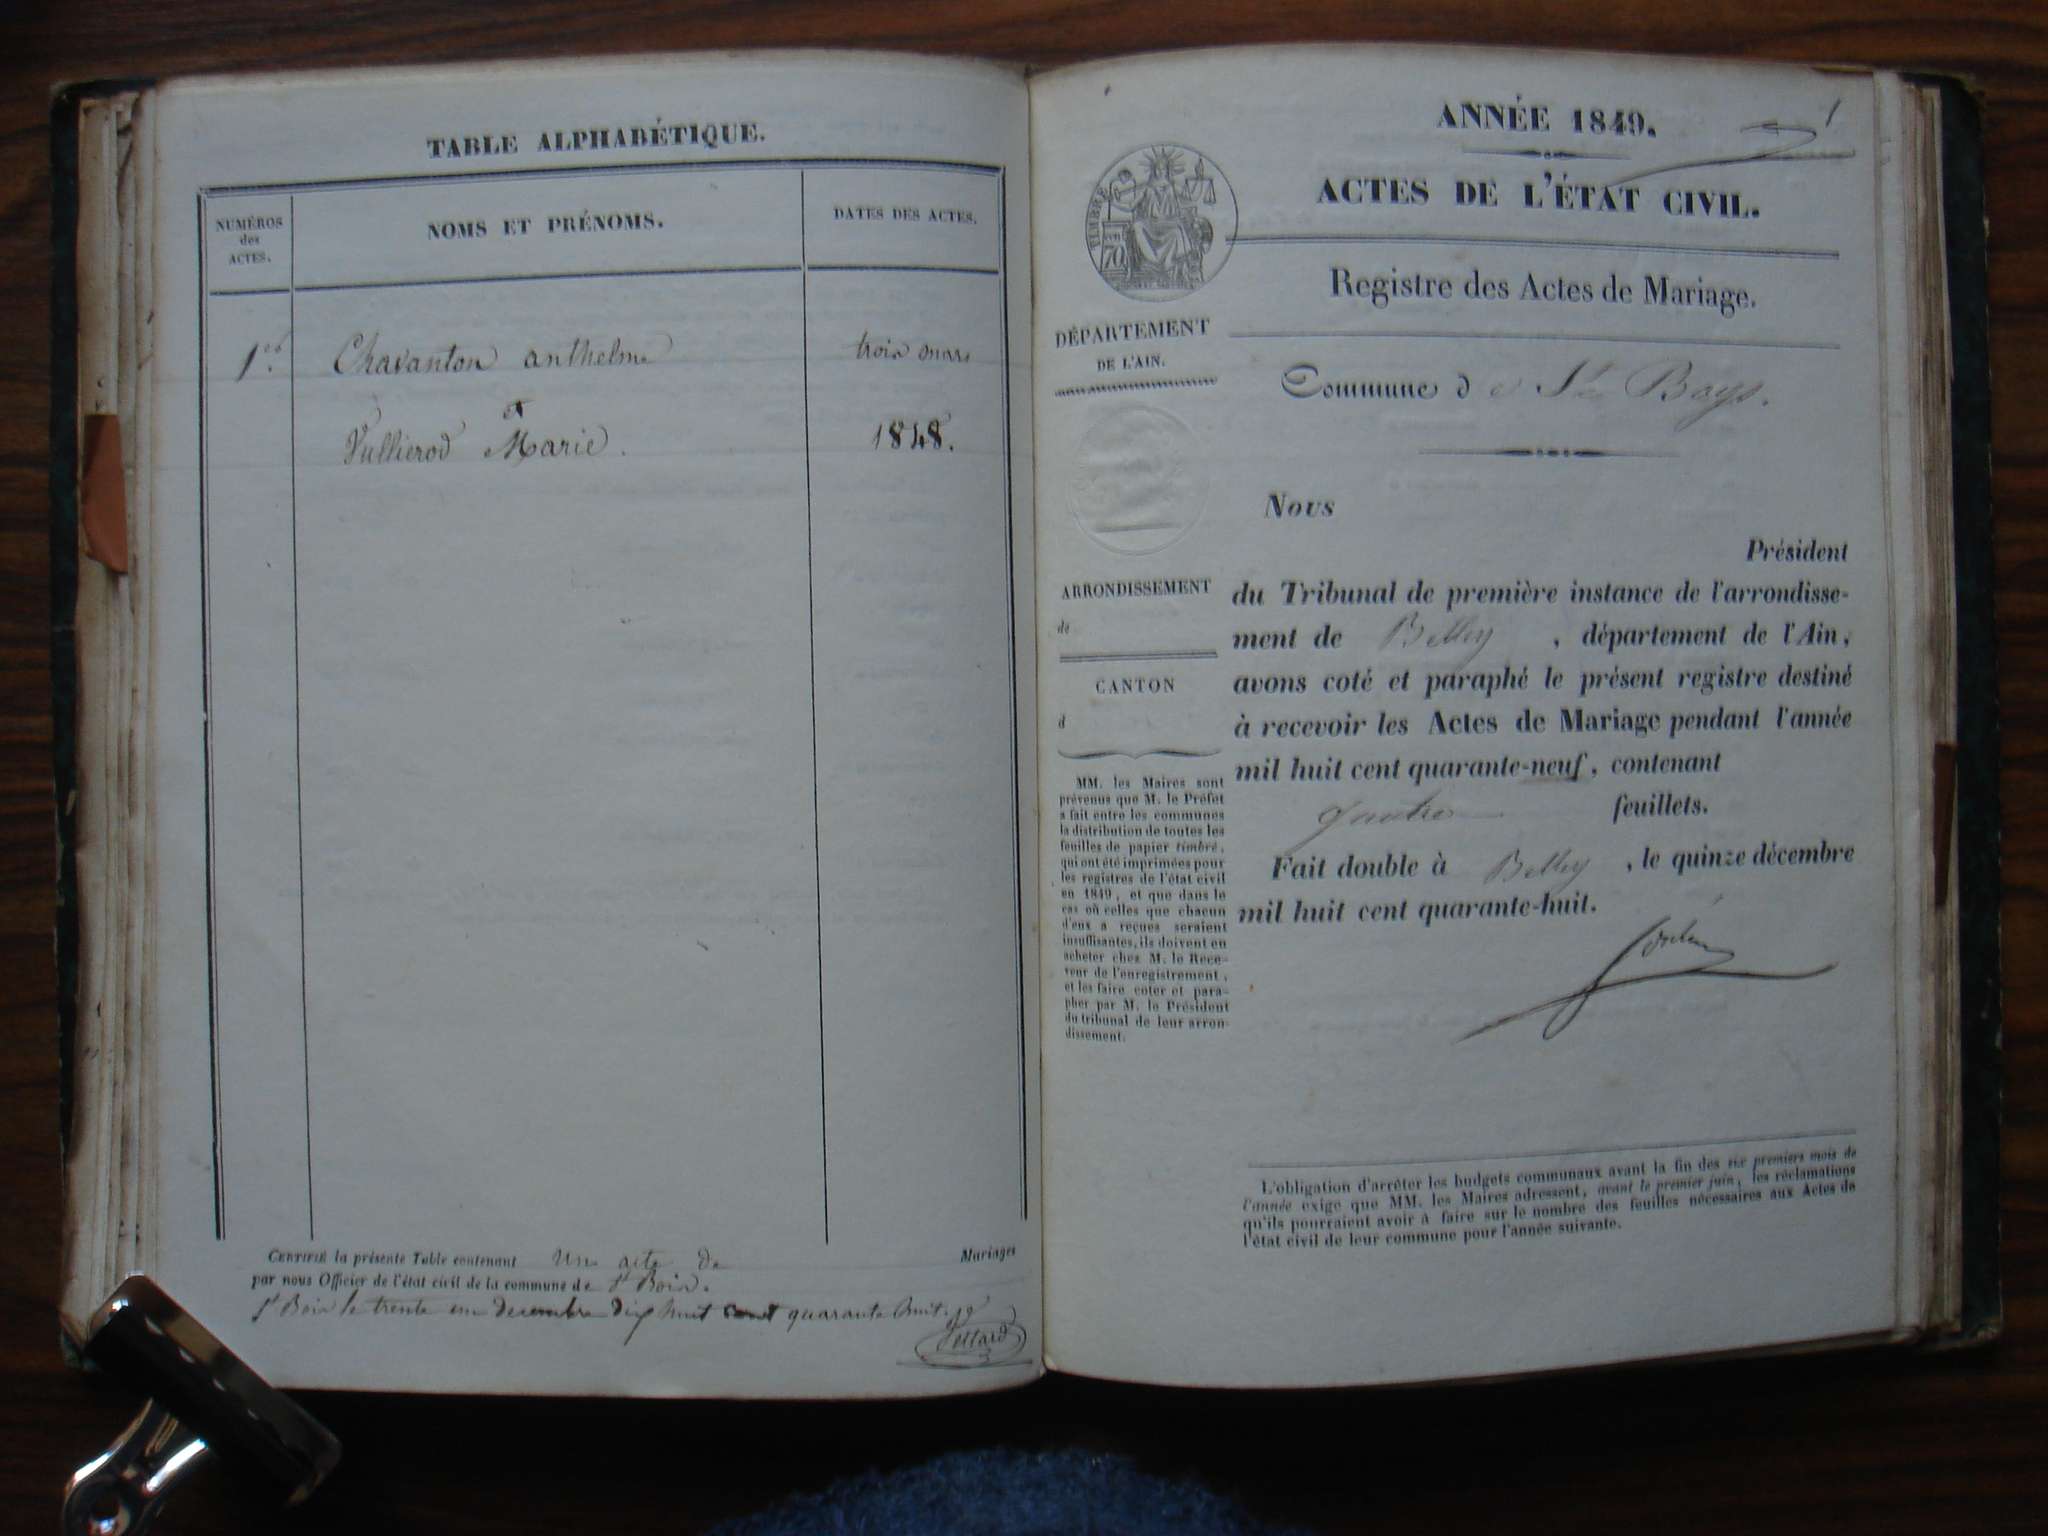 TABLE ALPHABÉTIQUE.
NUMÉROS
des
ACTES.
NOMS ET PRÉNOMS.
DATES DES ACTES.
1er. Chavanton anthelme trois mars
et
Vullierod Marie. 1848.
CERTIFIÉ la présente Table contenant Un acte de Mariages
par nous Officier de l'état civil de la commune de St Bois.
St Bois le trente un decembre dix huit cent quarante huit.
ANNÉE 1849.
1
ACTES DE L'ÉTAT CIVIL.
Registre des Actes de Mariage.
TIMBRE
70
DÉPARTEMENT
DE L'AIN.
Commune de St Boys.
Nous
Président
du Tribunal de première instance de l'arrondisse-
ment de Belley, département de l'Ain,
avons coté et paraphé le présent registre destiné
à recevoir les Actes de Mariage pendant l'année
mil huit cent quarante-neuf, contenant
quatre feuillets.
Fait double à Belley, le quinze décembre
mil huit cent quarante-huit.
ARRONDISSEMENT
de
CANTON
d
MM. les Maires sont
prévenus que M. le Préfet
a fait entre les communes
la distribution de toutes les
feuilles de papier timbré,
qui ont été imprimées pour
les registres de l'état civil
en 1849, et que dans le
cas où celles que chacun
d'eux a reçues seraient
insuffisantes, ils doivent en
acheter chez M. le Rece-
veur de l'enregistrement,
et les faire coter et para-
pher par M. le Président
du tribunal de leur arron-
dissement.
L'obligation d'arrêter les budgets communaux avant la fin des six premiers mois de
l'année exige que MM. les Maires adressent, avant le premier juin, les réclamations
qu'ils pourraient avoir à faire sur le nombre des feuilles nécessaires aux Actes de
l'état civil de leur commune pour l'année suivante.